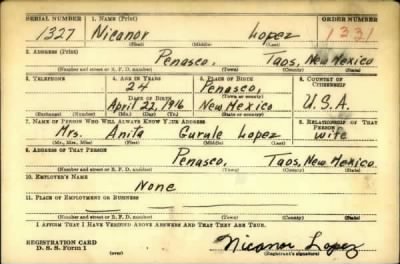 SERIAL NUMBER 1. NAME (Print) ORDER NUMBER
1327 Nicanor Lopez 1331
(First) (Middle) (Last)
2. ADDRESS (Print)
Penasco, Taos, New Mexico
(Number and street or R. F. D. number) (Town) (County) (State)
3. TELEPHONE 4. AGE IN YEARS 5. PLACE OF BIRTH 6. COUNTRY OF CITIZENSHIP
24 Penasco,
DATE OF BIRTH (Town or county)
April 22, 1916 New Mexico U.S.A.
(Exchange) (Number) (Mo.) (Day) (Yr.) (State or country)
7. NAME OF PERSON WHO WILL ALWAYS KNOW YOUR ADDRESS 8. RELATIONSHIP OF THAT PERSON
Mrs. Anita Gurule Lopez wife
(Mr., Mrs., Miss) (First) (Middle) (Last)
9. ADDRESS OF THAT PERSON
Penasco, Taos, New Mexico
(Number and street or R. F. D. number) (Town) (County) (State)
10. EMPLOYER'S NAME
None
11. PLACE OF EMPLOYMENT OR BUSINESS
(Number and street or R. F. D. number) (Town) (County) (State)
I AFFIRM THAT I HAVE VERIFIED ABOVE ANSWERS AND THAT THEY ARE TRUE.
REGISTRATION CARD
D. S. S. Form 1 (over) Nicanor Lopez
(Registrant's signature)